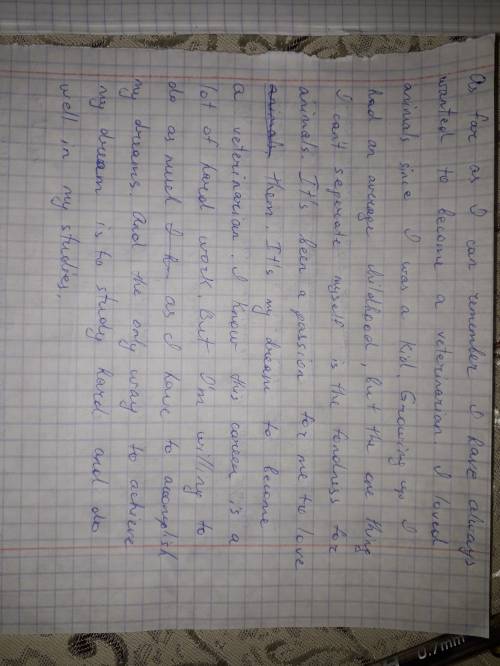 As far as I can remember I have always
wanted to become a veterinarian. I loved
animals since I was a kid. Growing up I
had an average childhood, but the one thing
I can't seperate myself is the fondness for
animals. It's been a passion for me to love
animals them. It's my dream to become
a veterinarian. I know this career is a
lot of hard work. But I'm willing to
do as much I as I have to accomplish
my dreams. And the only way to achieve
my dream is to study hard and do
well in my studies.
0.7mm